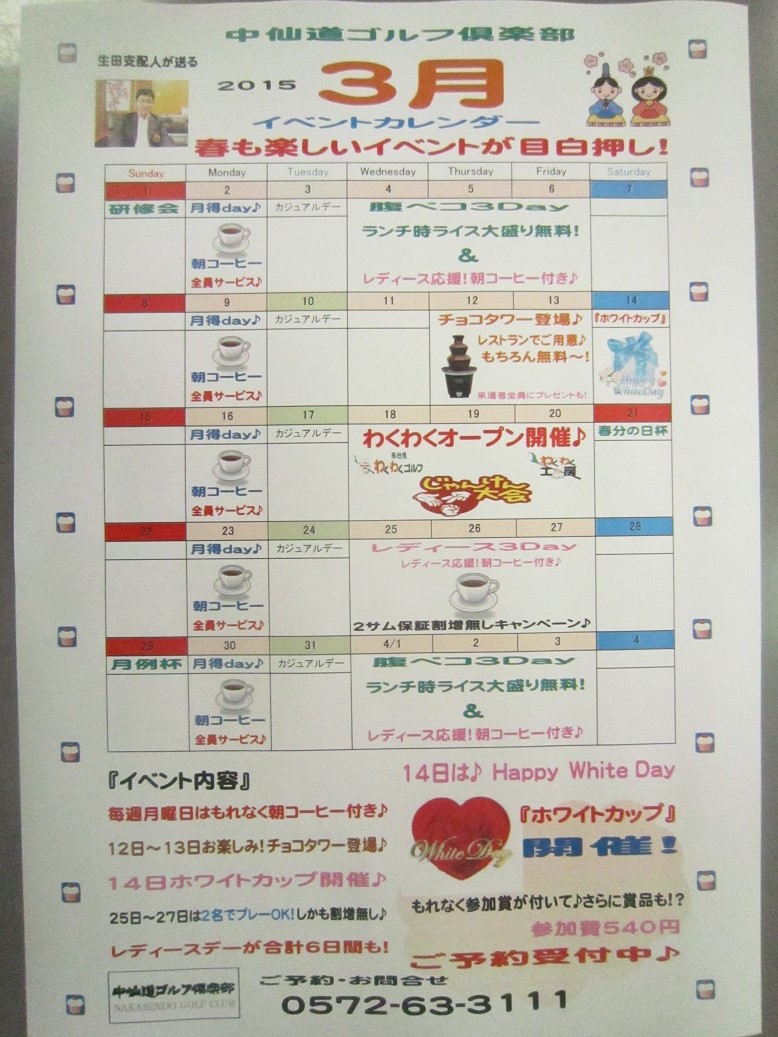 中仙道ゴルフ倶楽部
生田支配人が送る
2015 3月
イベントカレンダー
春も楽しいイベントが目白押し!
Sunday Monday Tuesday Wednesday Thursday Friday Saturday
1 2 3 4 5 6 7
研修会 月得day♪ カジュアルデー 腹ペコ3Day
ランチ時ライス大盛り無料!
&
朝コーヒー
全員サービス♪ レディース応援!朝コーヒー付き♪
8 9 10 11 12 13 14
月得day♪ カジュアルデー チョコタワー登場♪ 『ホワイトカップ』
レストランでご用意♪
もちろん無料〜!
朝コーヒー
全員サービス♪ 来場者全員にプレゼントも! Happy WhiteDay
15 16 17 18 19 20 21
月得day♪ カジュアルデー わくわくオープン開催♪ 春分の日杯
わくわくゴルフ わくわく工房
じゃんけん大会
朝コーヒー
全員サービス♪
22 23 24 25 26 27 28
月得day♪ カジュアルデー レディース3Day
レディース応援!朝コーヒー付き♪
朝コーヒー
全員サービス♪ 2サム保証割増無しキャンペーン♪
29 30 31 4/1 2 3 4
月例杯 月得day♪ カジュアルデー 腹ペコ3Day
ランチ時ライス大盛り無料!
&
朝コーヒー
全員サービス♪ レディース応援!朝コーヒー付き♪
『イベント内容』
毎週月曜日はもれなく朝コーヒー付き♪
12日〜13日お楽しみ!チョコタワー登場♪
14日ホワイトカップ開催♪
25日〜27日は2名でプレーOK!しかも割増無し♪
レディースデーが合計6日間も!
14日は♪ Happy White Day
White Day
『ホワイトカップ』
開催!
もれなく参加賞が付いて♪さらに賞品も!?
参加費540円
ご予約受付中♪
中仙道ゴルフ倶楽部
NAKASENDO GOLF CLUB
ご予約・お問合せ
0572-63-3111